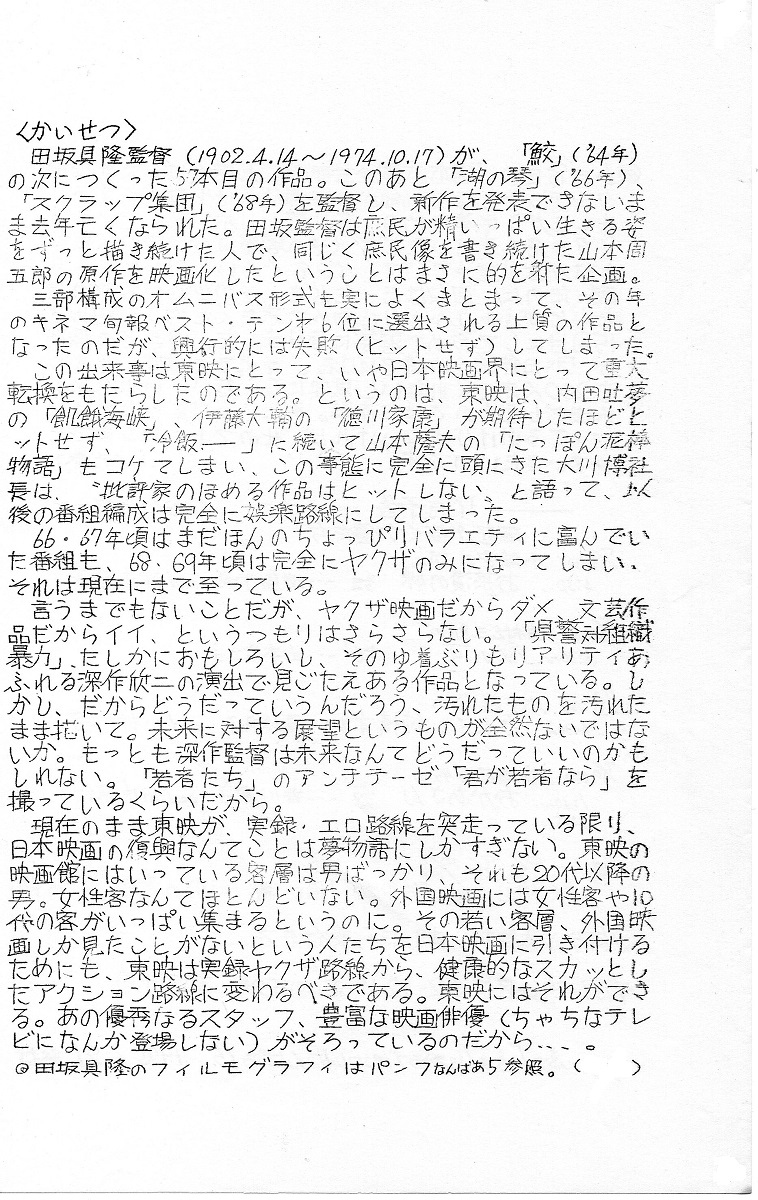 〈かいせつ〉
田坂具隆監督(1902.4.14～1974.10.17)が、「鮫」('64年)
の次につくった57本目の作品。このあと「湖の琴」('66年)、
「スクラップ集団」('68年)を監督し、新作を発表できないま
ま去年亡くなられた。田坂監督は庶民が精いっぱい生きる姿
をずっと描き続けた人で、同じく庶民像を書き続けた山本周
五郎の原作を映画化したということはまさに的を射た企画。
三部構成のオムニバス形式も実によくまとまって、その年
のキネマ旬報ベスト・テン第6位に選出される上質の作品と
なったのだが、興行的には失敗(ヒットせず)してしまった。
この出来事は東映にとって、いや日本映画界にとって重大
転換をもたらしたのである。というのは、東映は、内田吐夢
の「飢餓海峡」、伊藤大輔の「徳川家康」が期待したほどヒ
ットせず、「冷飯――」に続いて山本薩夫の「にっぽん泥棒
物語」もコケてしまい、この事態に完全に頭にきた大川博社
長は、〝批評家のほめる作品はヒットしない〟と語って、以
後の番組編成は完全に娯楽路線にしてしまった。
66・67年頃はまだほんのちょっぴりバラエティに富んでい
た番組も、68・69年頃は完全にヤクザのみになってしまい、
それは現在にまで至っている。
言うまでもないことだが、ヤクザ映画だからダメ、文芸作
品だからイイ、というつもりはさらさらない。「県警対組織
暴力」、たしかにおもしろいし、そのゆ着ぶりもリアリティあ
ふれる深作欣二の演出で見ごたえある作品となっている。し
かし、だからどうだっていうんだろう、汚れたものを汚れた
まま描いて。未来に対する展望というものが全然ないではな
いか。もっとも深作監督は未来なんてどうだっていいのかも
しれない。「若者たち」のアンチテーゼ「君が若者なら」を
撮っているくらいだから。
現在のまま東映が、実録・エロ路線を突走っている限り、
日本映画の復興なんてことは夢物語にしかすぎない。東映の
映画館にはいっている客層は男ばっかり、それも20代以降の
男。女性客なんてほとんどいない。外国映画には女性客や10
代の客がいっぱい集まるというのに。その若い客層、外国映
画しか見たことがないという人たちを日本映画に引き付ける
ためにも、東映は実録ヤクザ路線から、健康的なスカッとし
たアクション路線に変わるべきである。東映にはそれができ
る。あの優秀なるスタッフ、豊富な映画俳優(ちゃちなテレ
ビになんか登場しない)がそろっているのだから...。
◎田坂具隆のフィルモグラフィはパンフなんばあ5参照。(　　)